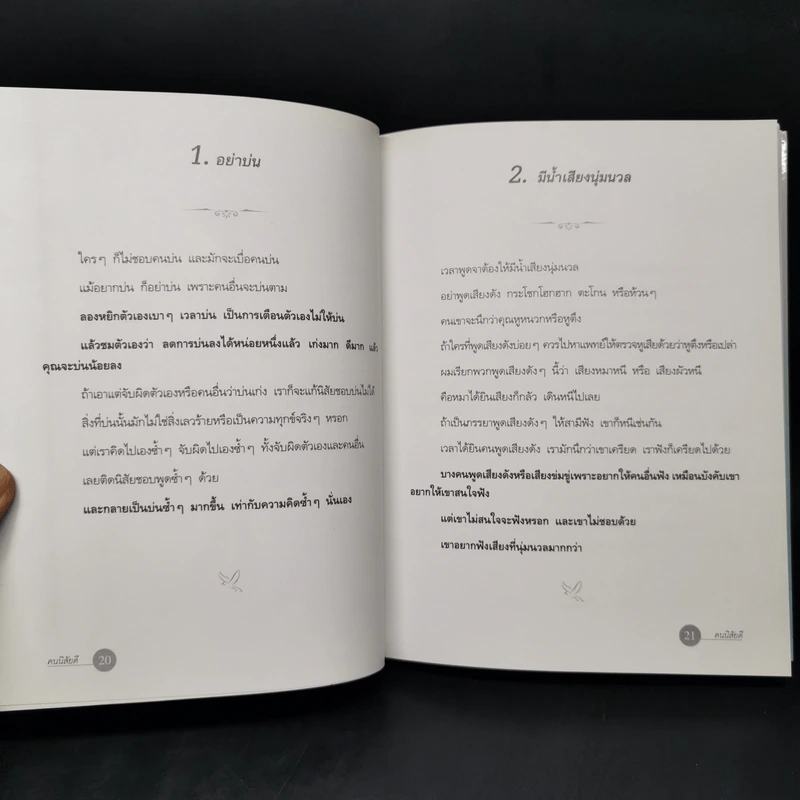 1. อย่าบ่น
ใครๆ ก็ไม่ชอบคนบ่น และมักจะเบื่อคนบ่น
แม้อยากบ่น ก็อย่าบ่น เพราะคนอื่นจะบ่นตาม
ลองหยิกตัวเองเบาๆ เวลาบ่น เป็นการเตือนตัวเองไม่ให้บ่น
แล้วชมตัวเองว่า ลดการบ่นลงได้หน่อยหนึ่งแล้ว เก่งมาก ดีมาก แล้ว
คุณจะบ่นน้อยลง
ถ้าเอาแต่จับผิดตัวเองหรือคนอื่นว่าบ่นเก่ง เราก็จะแก้นิสัยชอบบ่นไม่ได้
สิ่งที่บ่นนั้นมักไม่ใช่สิ่งเลวร้ายหรือเป็นความทุกข์จริงๆ หรอก
แต่เราคิดไปเองซ้ำๆ จับผิดไปเองซ้ำๆ ทั้งจับผิดตัวเองและคนอื่น
เลยติดนิสัยชอบพูดซ้ำๆ ด้วย
และกลายเป็นบ่นซ้ำๆ มากขึ้น เท่ากับความคิดซ้ำๆ นั่นเอง
คนนิสัยดี 20
2. มีน้ำเสียงนุ่มนวล
เวลาพูดจาต้องให้มีน้ำเสียงนุ่มนวล
อย่าพูดเสียงดัง กระโชกโฮกฮาก ตะโกน หรือห้วนๆ
คนเขาจะนึกว่าคุณหูหนวกหรือหูตึง
ถ้าใครที่พูดเสียงดังบ่อยๆ ควรไปหาแพทย์ให้ตรวจหูเสียด้วยว่าหูตึงหรือเปล่า
ผมเรียกพวกพูดเสียงดังๆ นี้ว่า เสียงหมาหนี หรือ เสียงผัวหนี
คือหมาได้ยินเสียงก็กลัว เดินหนีไปเลย
ถ้าเป็นภรรยาพูดเสียงดังๆ ให้สามีฟัง เขาก็หนีเช่นกัน
เวลาได้ยินคนพูดเสียงดัง เรามักนึกว่าเขาเครียด เราฟังก็เครียดไปด้วย
บางคนพูดเสียงดังหรือเสียงข่มขู่เพราะอยากให้คนอื่นฟัง เหมือนบังคับเขา
อยากให้เขาสนใจฟัง
แต่เขาไม่สนใจจะฟังหรอก และเขาไม่ชอบด้วย
เขาอยากฟังเสียงที่นุ่มนวลมากกว่า
21 คนนิสัยดี